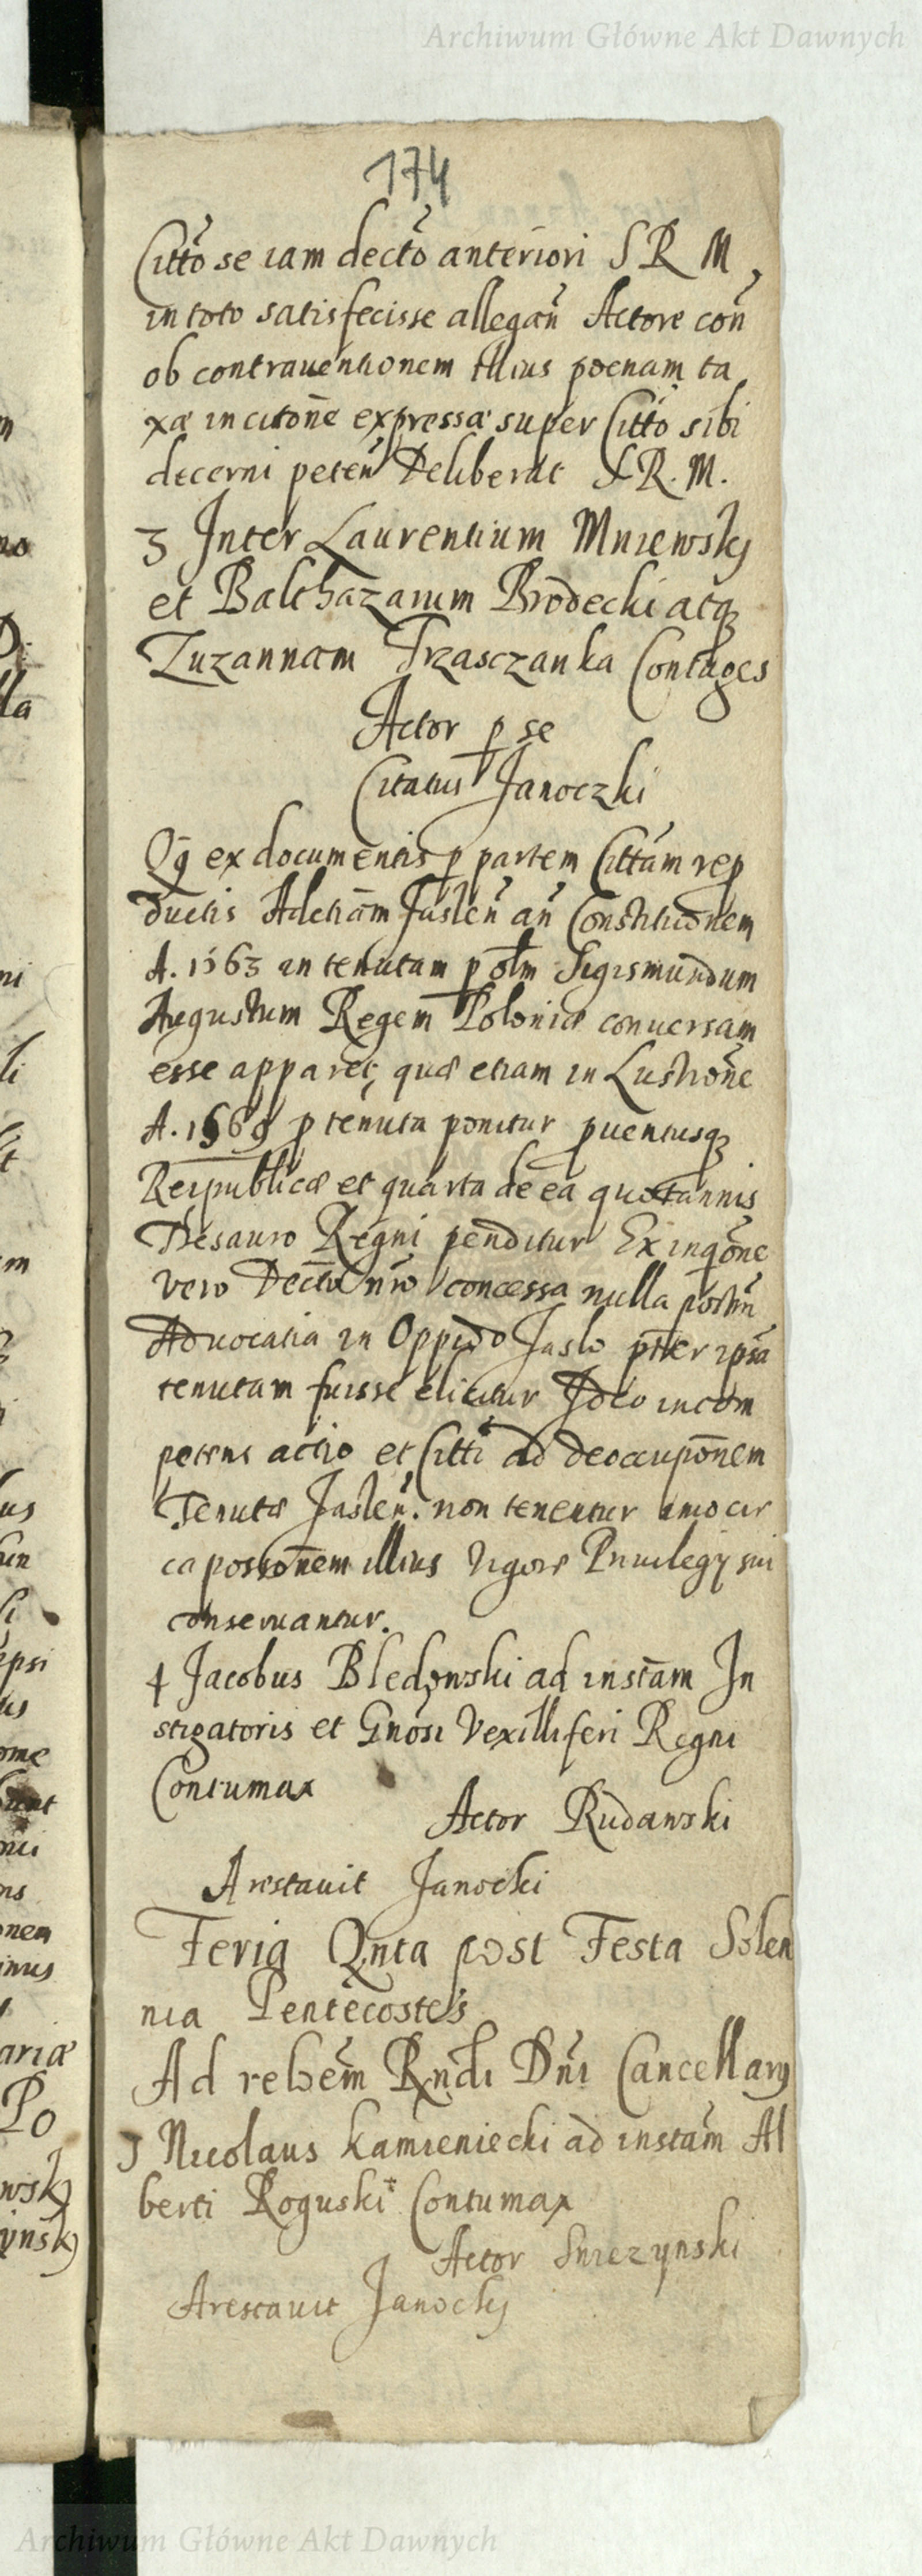 Archiwum Główne Akt Dawnych
174
Citto se iam decto anteriori S R M
in toto satisfecisse allegan Actore con
ob contrauentionem illius poenam ta
xæ in citone expressæ super Citto sibi
decerni peten Deliberat S. R. M.
3 Inter Laurentium Mniewsky
et Balthazarum Brodecki atq
Zuzannam Trzasczanka Coniuges
Actor p se
Citatus Janoczki
Qq ex documentis p partem Cittam rep
ductis Aduetiam Jaslen an Constitutionem
A. 1563 in tenutam p olm Sigismundum
Augustum Regem Poloniæ conuersam
esse apparet, quæ etiam in Lustrone
A. 1569 p tenuta ponitur puentusq
Reipublicæ et quarta de ea quotannis
Thesauro Regni penditur Ex inqone
vero Decto nro concessa nulla postm
Aduocatia in Oppido Jaslo pter ipsa
tenutam fuisse elicitur Ideo incom
petens actio et Citti ad deoccuponem
Tenutæ Jaslen. non tenentur imo cir
ca possonem illius vigore Priuilegij sui
conseruantur.
4 Jacobus Bledowski ad instam In
stigatoris et Gnosi Vexilliferi Regni
Contumax
Actor Rudawski
Arestauit Janocki
Feria Qnta post Festa Solen
nia Pentecostes
Ad reloem Rndi Dni Cancellarij
1 Nicolaus Kamieniecki ad instam Al
berti Roguski Contumax
Actor Sniezynski
Arestauit Janocky
Archiwum Główne Akt Dawnych